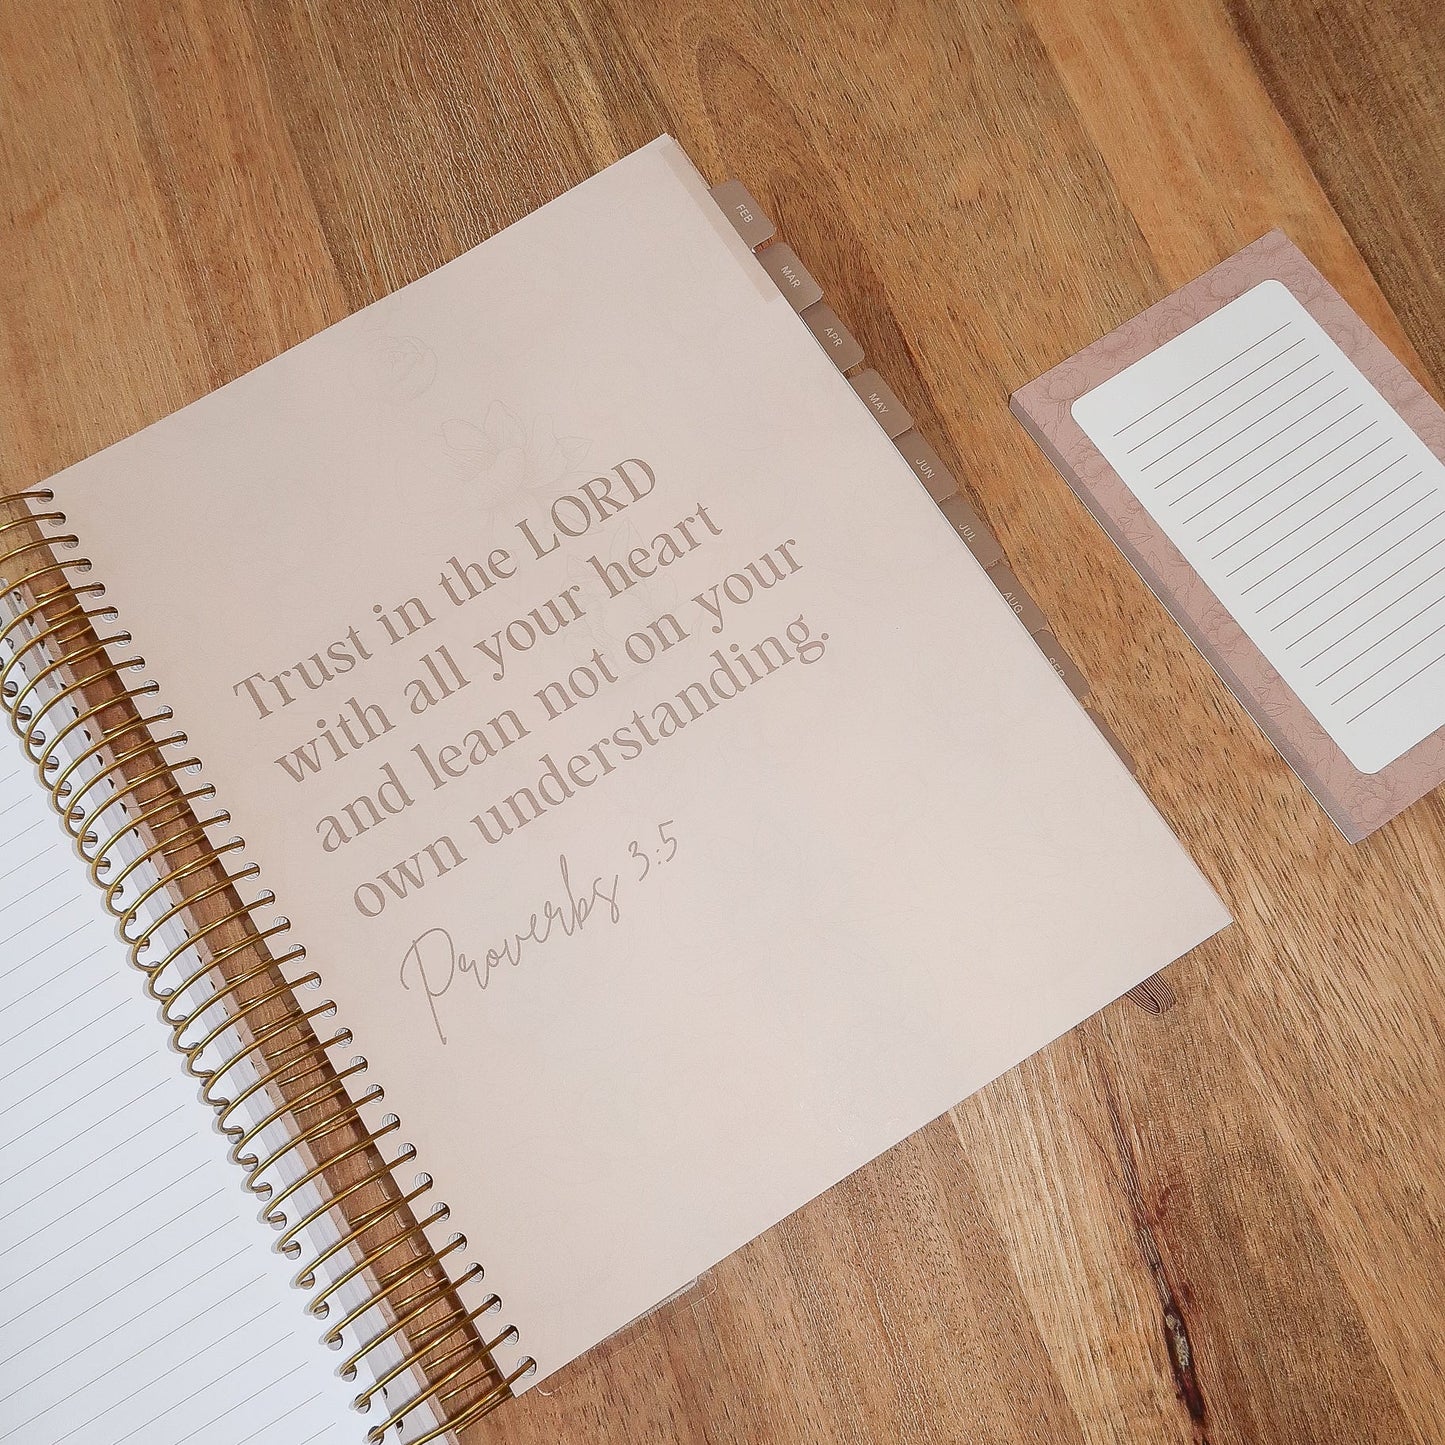 Trust in the LORD
with all your heart
and lean not on your
own understanding.
Proverbs 3:5
FEB
MAR
APR
MAY
JUN
JUL
AUG
SEP